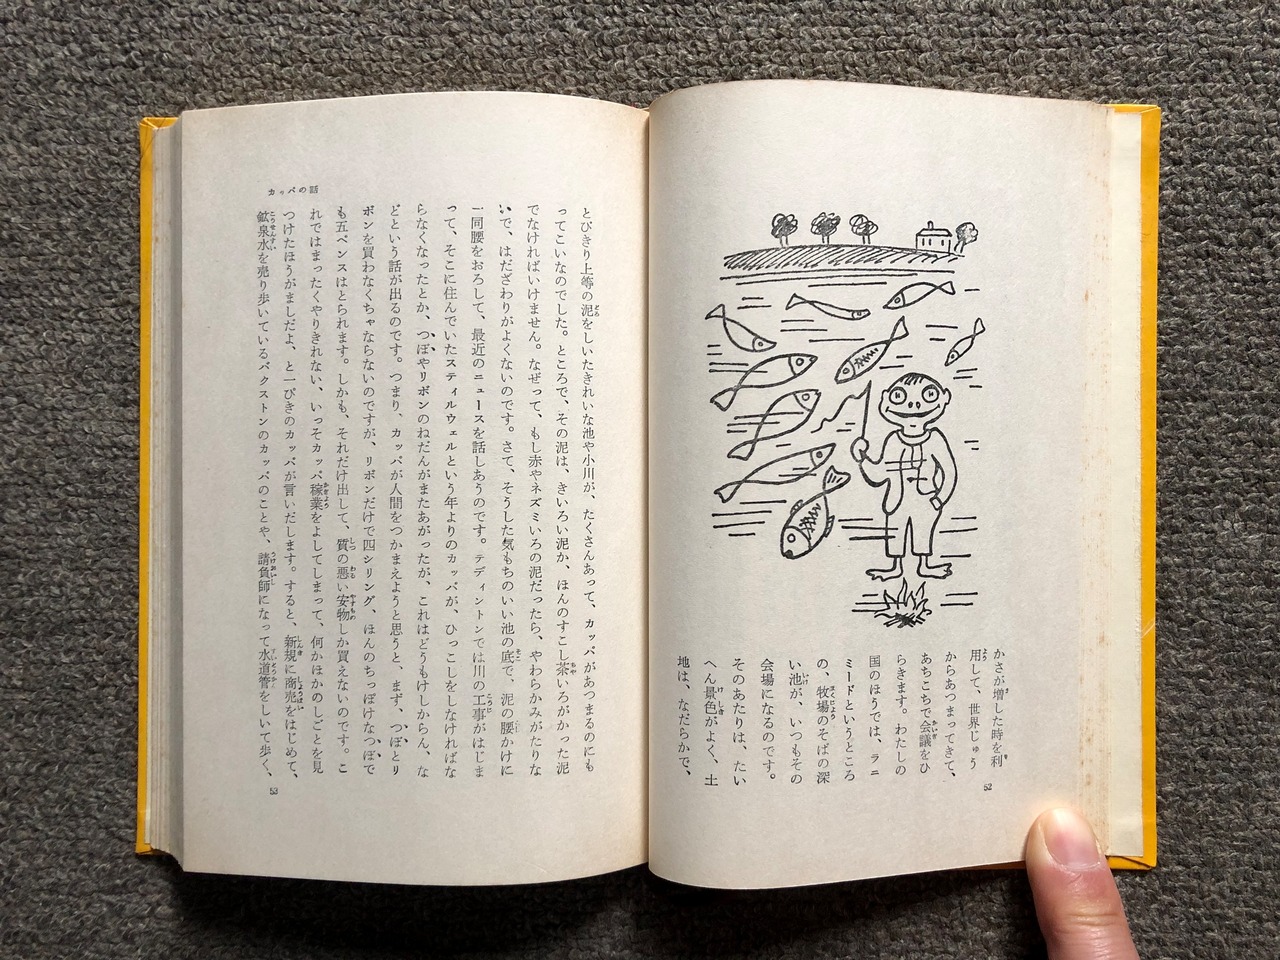 かさが増した時を利
用して、世界じゅう
からあつまってきて、
あちこちで会議をひ
らきます。わたしの
国のほうでは、ラニ
ミードというところ
の、牧場のそばの深
い池が、いつもその
会場になるのです。
そのあたりは、たい
へん景色がよく、土
地は、なだらかで、
52
とびきり上等の泥をしいたきれいな池や小川が、たくさんあって、カッパがあつまるのにも
ってこいなのでした。ところで、その泥は、きいろい泥か、ほんのすこし茶いろがかった泥
でなければいけません。なぜって、もし赤やネズミいろの泥だったら、やわらかみがたりな
いで、はだざわりがよくないのです。さて、そうした気もちのいい池の底で、泥の腰かけに
一同腰をおろして、最近のニュースを話しあうのです。テディントンでは川の工事がはじま
って、そこに住んでいたスティルウェルという年よりのカッパが、ひっこしをしなければな
らなくなったとか、つぼやリボンのねだんがまたあがったが、これはどうもけしからん、な
どという話が出るのです。つまり、カッパが人間をつかまえようと思うと、まず、つぼとリ
ボンを買わなくちゃならないのですが、リボンだけで四シリング、ほんのちっぽけなつぼで
も五ペンスはとられます。しかも、それだけ出して、質の悪い安物しか買えないのです。こ
れではまったくやりきれない、いっそカッパ稼業をよしてしまって、何かほかのしごとを見
つけたほうがましだよ、と一ぴきのカッパが言いだします。すると、新規に商売をはじめて、
鉱泉水を売り歩いているバクストンのカッパのことや、請負師になって水道管をしいて歩く、
カッパの話
53